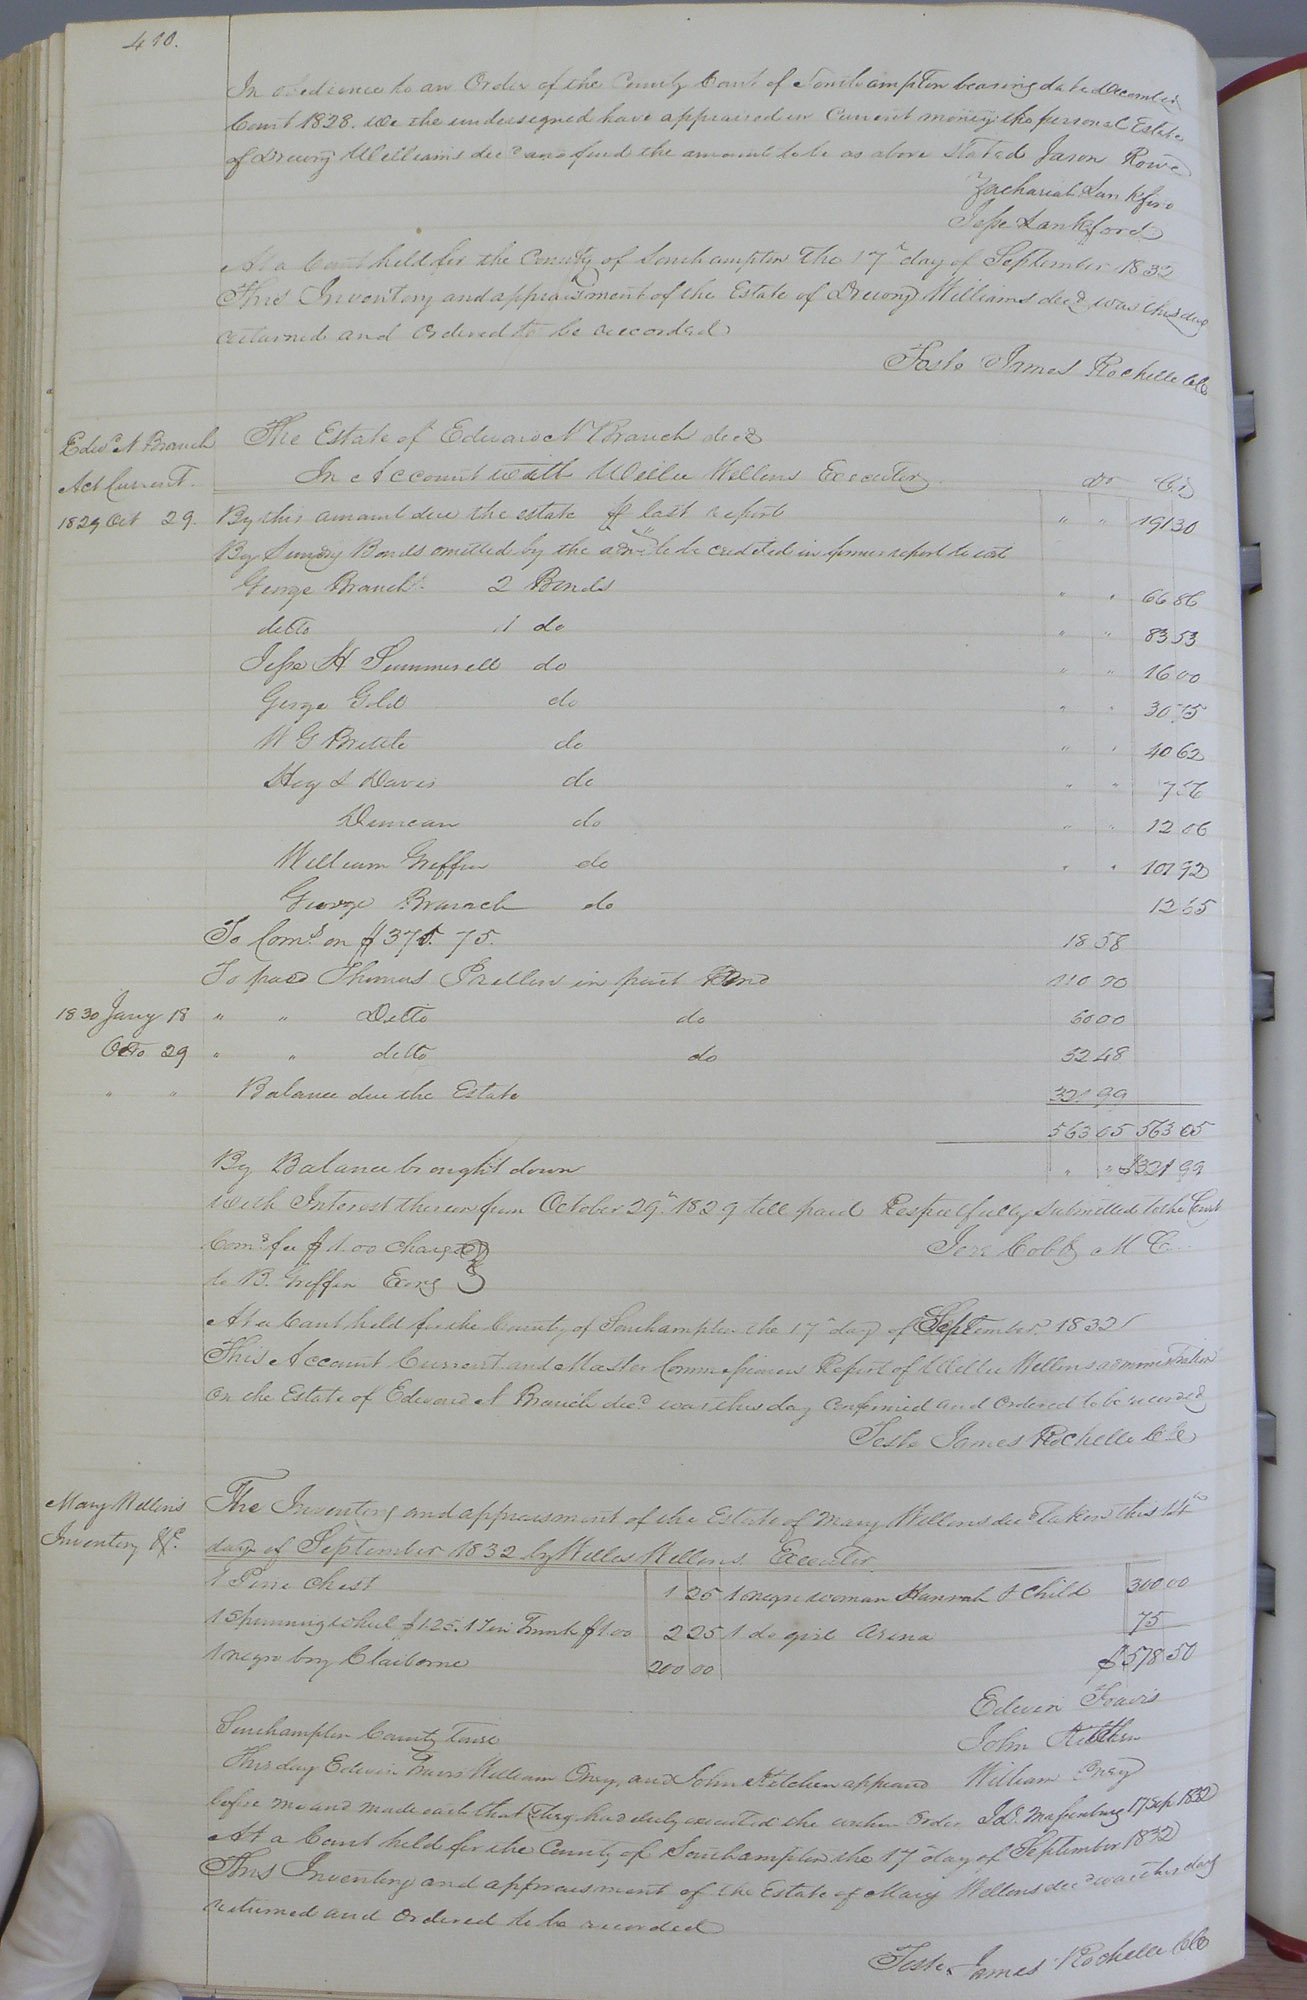 410.
In obedience to an Order of the County Court of Southampton bearing date December
Court 1828. We the undersigned have appraised in Current money the personal Estate
of Drewry Williams decd and find the amount to be as above stated Jason Rowe
Zachariah Lankford
Jesse Lankford
At a Court held for the County of Southampton the 17th day of September 1832
This Inventory and appraisment of the Estate of Drewry Williams decd was this day
returned and Ordered to be recorded
Teste James Rochelle Clk
Edwd N Branch The Estate of Edward N Branch decd
Act Current. In Account with Willie Wellons Executor Dr Cr
1829 Oct 29. By this amount due the estate pr last report " " 191 30
By Sundry Bonds omitted by the to be credited in former report to wit
George Branch 2 Bonds " " 66 86
ditto 1 do " " 83 53
Jesse H Summerell do " " 16 00
George Gold do " " 30 75
W G Brittle do " " 40 62
Davis do " " 7 56
Duncan do " " 12 06
William Griffin do " " 101 92
George Branch do 12 65
To Coms on $ 371. 75. 18 58
To paid Thomas in part Bond 110 00
1830 Jany 18 " " Ditto do 60 00
Octo 29 " " ditto do 52 48
" " Balance due the Estate 321 99
563 05 563 05
By Balance brought down " " $321 99
with Interest thereon from October 29th 1829 till paid Respectfully Submitted to the Court
Coms fee $1.00 charged Jere Cobb M C
to B. Griffin Exors
At a Court held for the County of Southampton the 17th day of September 1832
This Account Current and Master Commissioners Report of Willie Wellons administration
on the Estate of Edward N Branch decd was this day Confirmed and Ordered to be recorded
Teste James Rochelle Clk
Mary Wellons The Inventory and appraisment of the Estate of Mary Wellons decd taken this 14th
Inventory &c. day of September 1832 by Willie Wellons Executor
1 Pine Chest 1 25 1 negro woman Hannah & Child 300 00
1 Spinning wheel $1.25. 1 Tin Trunk $1.00 2 25 1 do girl Arena 75
1 negro boy Claiborne 200 00 $578 50
Edwin Travis
Southampton County Towit John Kitchen
This day Edwin Travis William Vney, and John Kitchen appeared William
before me and made oath that they had duly executed the within Order Massenburg 17 Sep 1832
At a Court held for the County of Southampton the 17th day of September 1832
This Inventory and appraisment of the Estate of Mary Wellons decd was this day
returned and Ordered to be recorded
Teste James Rochelle Clk